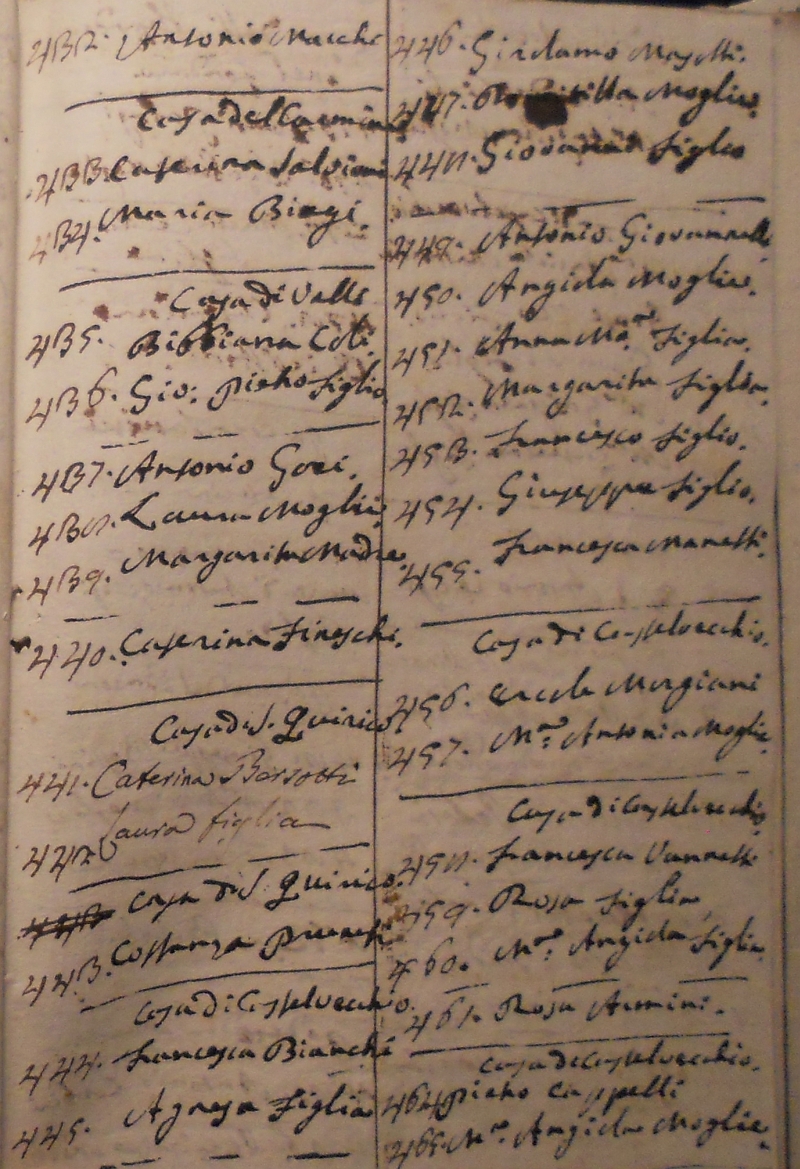 432. Antonio Macchi
Casa del Carmine
433. Caterina Salvioni
434. Maria Biagi.
Casa di Valle
435. Bibbiana Coli.
436. Gio: Pietro figlio
437. Antonio Gori.
438. Laura Moglie.
439. Margarita Madre.
440. Caterina Fineschi.
Casa di S. Quirico
441. Caterina Bersotti
442. Laura figlia
Casa di S. Quirico.
443. Costanza
Casa di Castelvecchio.
444. Francesca Bianchi
445. Agnesa figlia
446. Girolamo Masetti.
447. Moglie.
448. Giovanni figlio
449. Antonio Giovannelli
450. Angiola Moglie.
451. Anna Ma. figlia.
452. Margarita figlia.
453. Francesco figlio.
454. Giuseppe figlio.
455. Francesca Manetti.
Casa di Castelvecchio.
456. Ercole Morgiani
457. Ma. Antonia Moglie.
Casa di Castelvecchio
458. Francesca Vannetti
459. Rosa figlia
460. Ma. Angiola figlia
461. Rosa Armini.
Casa di Castelvecchio.
464 Pietro Cappelli
465. Ma. Angiola Moglie.